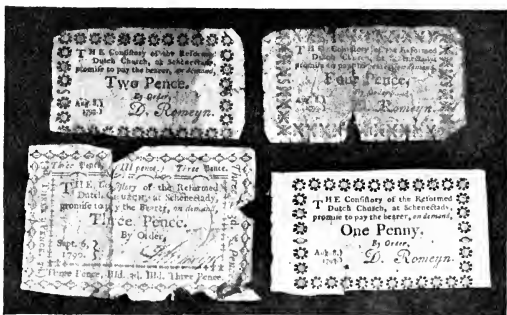 THE Consistory of the Reformed
Dutch Church, at Schenectady,
promise to pay the bearer, on demand,
Two Pence.
By Order,
Aug. 8,
D. Romeyn.
THE Consistory of the Reformed
Dutch Church, at
promise to pay the on demand,
Four Pence.
By
Aug. 8,
D. Romeyn.
Three Pence
Three Pence.
THE of the Reformed
Dutch CHURCH, at Schenectady,
promise to pay the Bearer, on demand,
Three Pence.
By Order,
Sept. 6,
1790.
Three Pence, Three Pence.
THE Consistory of the Reformed
Dutch Church, at Schenectady,
promise to pay the bearer, on demand,
One Penny.
By Order,
Aug. 8,
D. Romeyn.